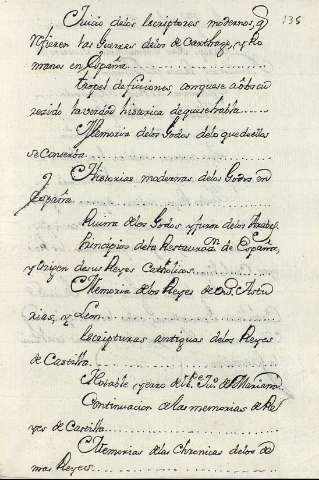 135
Juicio delos escriptores modernos, q̃
refieren las Guerras delos de Carthago, y Ro
manos en España
tropel deficiones, conquese a obscu
recido laverdad historica dequesetrabla
Memoria delos Godos delo quedellos
se Conserva
Historias modernas delos Godos en
España
Ruina delos Godos, y furor delos Arabes.
Principios dela Restaurac.ⁿ de España,
y origen desus Reyes Catholicos
Memoria delos Reyes de Astu
rias, y Leon
Escripturas antiguas delos Reyes
de Castilla
Notable yerro del P.e Ju.º de Mariana
Continuacion delas memorias de Re
yes de Castilla
Memorias delas Chronicas delos de
mas Reyes